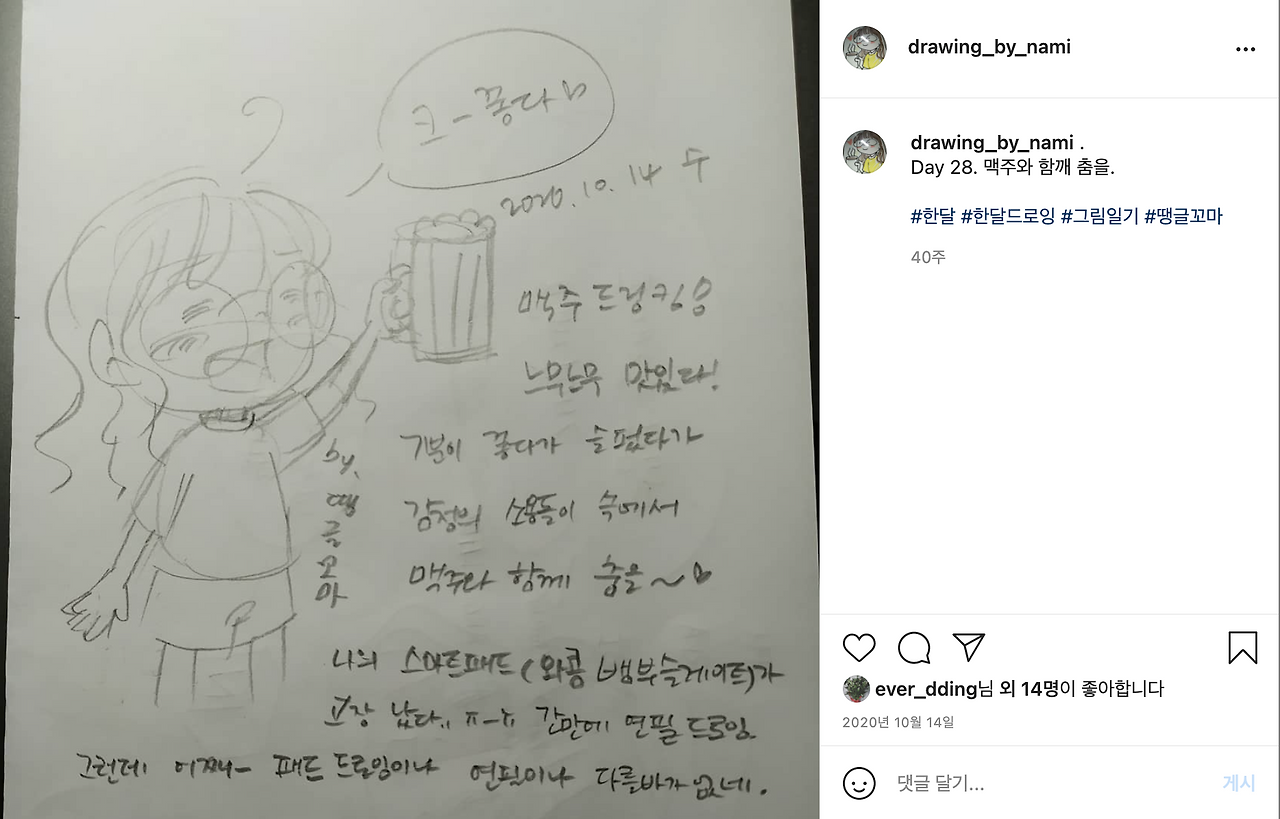 크-쫗다
2020.10.14 수
맥주 드링킹
느무느무 맛있다!
기분이 좋다가 슬펐다가
감정의 소용돌이 속에서
맥주와 함께 춤을~
by. 땡글꼬마
나의 스마트패드(와콤 뱀부슬레이트)가
고장 났다.. ㅠ-ㅠ 간만에 연필 드로잉.
그런데 어쩌나- 패드 드로잉이나 연필이나 다를바가 없네.
drawing_by_nami
drawing_by_nami .
Day 28. 맥주와 함깨 춤을.
#한달 #한달드로잉 #그림일기 #땡글꼬마
40주
ever_dding님 외 14명이 좋아합니다
2020년 10월 14일
댓글 달기...
게시